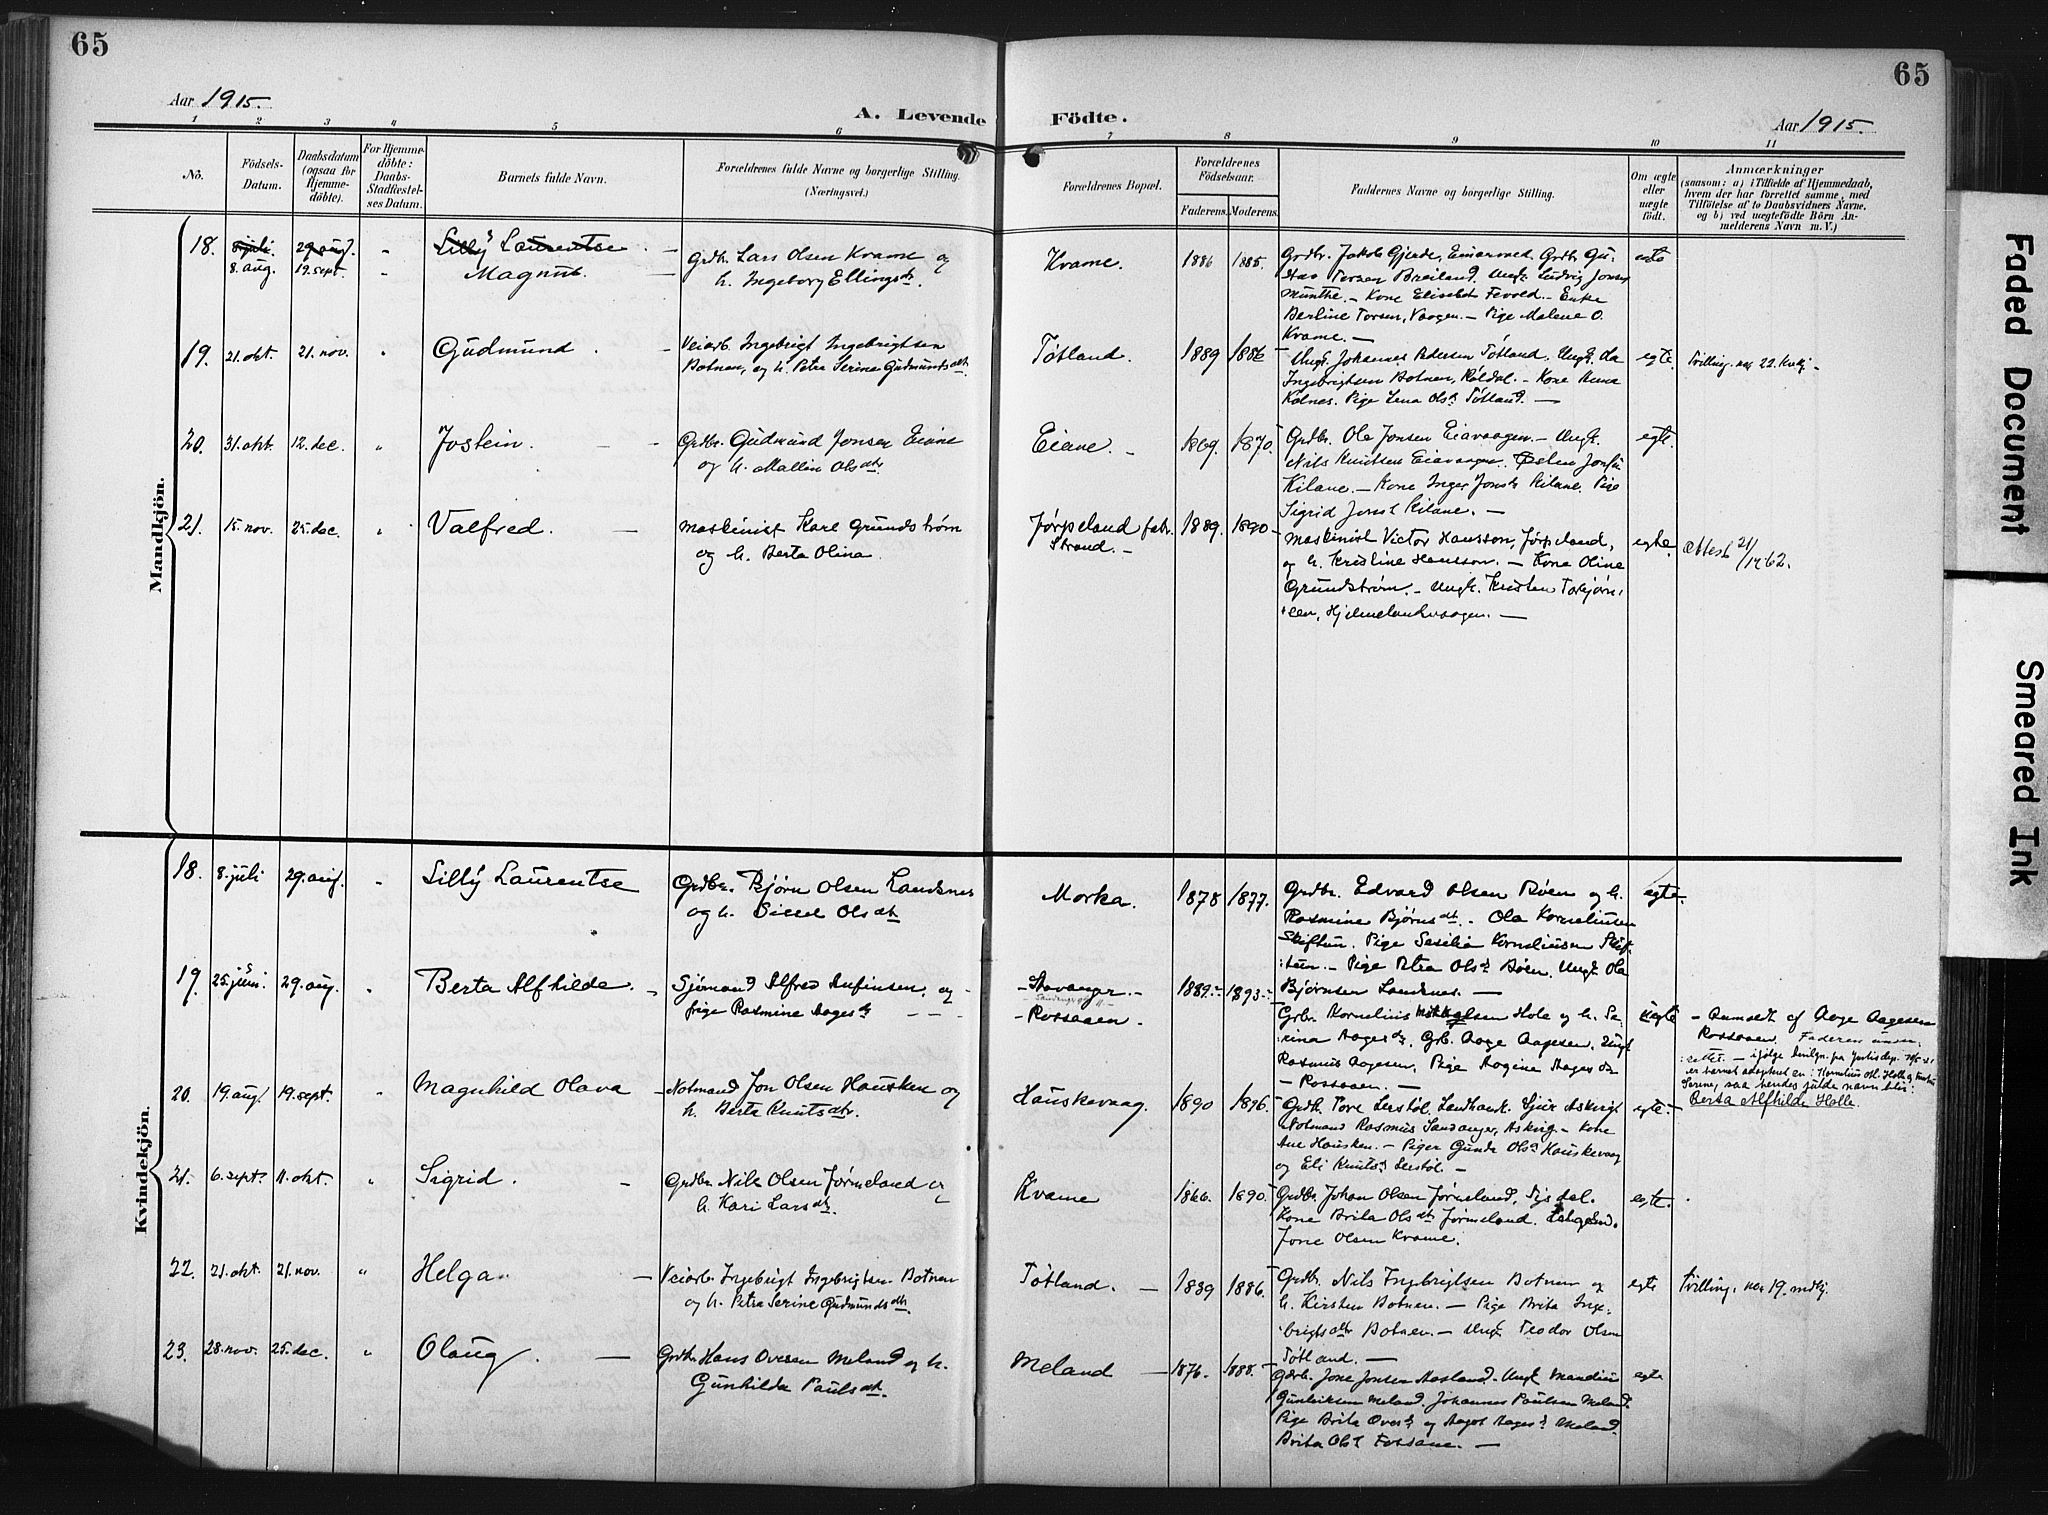 65
65
Aar 1915.
A. Levende
Födte.
Aar 1915.
1 2 3 4 5 6 7 8 9 10 11
No.
Födsels-
Datum.
Daabsdatum
(ogsaa for
Hjemme-
döbte).
For Hjemme-
döbte:
Daabs-
Stadfæstel-
ses Datum.
Barnets fulde Navn.
Forældrenes fulde Navne og borgerlige Stilling.
(Næringsvei.)
Forældrenes Bopæl.
Forældrenes
Födselsaar.
Faderens. Moderens.
Faddernes Navne og borgerlige Stilling.
Om ægte
eller
uægte
födt.
Anmærkninger
(saasom: a) i Tilfælde af Hjemmedaab,
hvem der har forrettet samme, med
Tilföielse af to Daabsvidners Navne.
og b) ved uægtefödte Börn An-
melderens Navn m. V.)
Mandkjön.
18. 8 juli 29. aug. " Lilly Laurentse
8. aug. 19. sept. " Magnus.
Grdbr. Lars Olsen Kvame og
h. Ingeborg Ellingsdtr.
Kvame.
1886 1885.
Grdbr. Jakob Gjerde, Grdb. Gu-
Breiland. Ungk. Ludvig Jonsen
Munthe. – Kone Elisabet Fevold. – Enke
Berline Torsen, Vaagen. – Pige Malene O.
Kvame. –
egte
19. 21. okt. 21. nov. " Gudmund.
Veiarb. Ingebrigt Ingebrigtsen
Botnen, og h. Petra Serine Gudmundsdtr.
Tøtland.
1889 1886
Ungk. Johannes Pedersen Tøtland. Ungk.
Ingebrigtsen Botnen, Røldal. – Kone
Kølnes. Pige Lena Olsd. Tøtland. –
egte.
Tvilling. no. 22. Kvkj –
20. 31. okt. 12. dec. " Jostein.
Grdbr. Gudmund Jonsen Eiane
og h. Mallin Olsdtr.
Eiane.
1869. 1870.
Grdbr. Ole Jonsen Eiavaagen. – Ungk.
Nils Knutsen Eiavaagen. Østen Jonsen
Kilane. – Kone Inger Jonsd. Kilane. Pige
Sigrid Jonsd. Kilane. –
egte.
21. 15. nov. 25. dec. " Valfred.
Maskinist Karl Grundstrøm
og h. Berta Olina.
Jørpeland fabr.
Strand. –
1889. 1890
Maskinist Victor Hansson, Jørpeland,
og h. Kristine Hansson. – Kone Oline
Grundstrøm. – Ungk. Kristen Torbjørn-
sen, Hjelmelandsvaagen. –
egte.
Attest 21/1962.
Kvindekjön.
18. 8. juli 29. aug. " Lilly Laurentse
Grdbr. Bjørn Olsen Landsnes
og h. Sissel Olsdtr.
Morka.
1878 1877.
Grdbr. Edvard Olsen Bøen og h.
Rasmine Bjørnsdtr. Ola Korneliusen
Skiftun. Pige Sesilia Korneliusen Skif-
tun. – Pige Petra Olsd. Bøen. Ungk. Ola
Bjørnsen Landsnes. –
egte.
19. 25. juni. 29. aug. " Berta Alfhilde.
Sjømand Alfred Aufinsen, og
pige Rasmine Aagesdtr.
Stavanger. –
Rossaaen.
1889. 1893.
Grbr. Kornelius Hole og h. Se-
rina Aagesdtr. Grb. Aage Aagesen. Ungk
Rasmus Aagesen. Pige Aagine Aagesdtr
– Rossaaen. –
uegte
– Anmeldt af Aage Aagesen
Rossaaen. Faderen
ifølge bevilgn. fra Justisdep.
er barnet adopteret
Serine, saa hendes fulde navn blir:
Berta Alfhilde Holle.
20. 19. aug. 19. sept. " Magnhild Olava
Notmand Jon Olsen Hausken og
h. Berta Knutsdtr.
Hauskevaag.
1890 1896.
Grdb. Tore Leestøl. Landhandl. Sjur Askvig
Notmand Rasmus Sandanger, Askvig. – Kone
Ane Hausken. – Piger Gunda Olsd Hauskevaag
og Eli Knutsd. Leestøl. –
egte.
21. 6. sept. 11. okt. " Sigrid.
Grdbr. Nils Olsen Jørmeland og
h. Kari Larsdtr.
Kvame
1866. 1890.
Grdbr. Johan Olsen Jørmeland,
Kone Brita Olsdtr Jørmeland.
Jone Olsen Kvame.
egte.
22. 21. okt. 21. nov. " Helga.
Veiarb. Ingebrigt Ingebrigtsen Botnen
og h. Petra Serine Gudmundsdtr.
Tøtland. –
1889 1886.
Grdbr. Nils Ingebrigtsen Botnen og
h. Kirsten Botnen. – Pige Brita Inge-
brigtsdtr Botnen. – Ungk. Teodor Olsen
Tøtland. –
egte
Tvilling. no. 19. mdkj.
23. 28. nov. 25. dec. " Olaug.
Grdbr. Hans Ovesen Meland og h.
Gunhilda Paulsdtr.
Meland
1876. 1888.
Gdbr. Jone Jonsen Aasland. Ungk
Meland. Johannes Paulsen Meland.
Pige Brita Oversd. og Aagot Aagesd. Meland.
Brita Olsd Fossane. –
egte
Faded Document
Smeared Ink